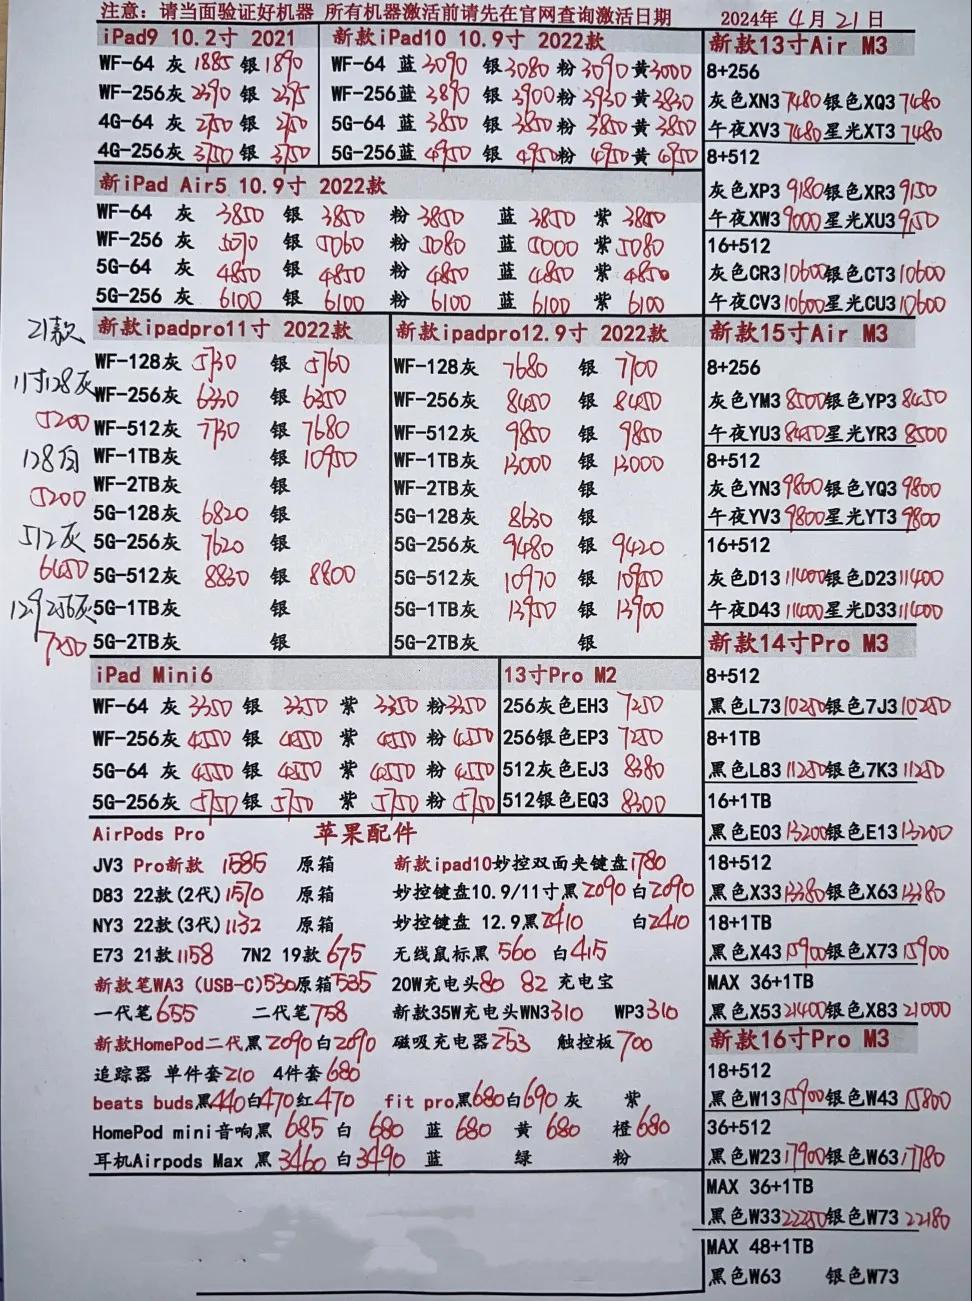 注意：请当面验证好机器 所有机器激活前请先在官网查询激活日期
2024年 4月 21日
iPad9 10.2寸 2021
WF-64 灰 1885 银 1890
WF-256灰 2390 银 2395
4G-64 灰 2750 银 2750
4G-256灰 3750 银 3750
新款iPad10 10.9寸 2022款
WF-64 蓝 3090 银 3080 粉 3090 黄 3000
WF-256蓝 3890 银 3900 粉 3930 黄 3830
5G-64 蓝 3850 银 3850 粉 3850 黄 3850
5G-256蓝 4950 银 4950 粉 4950 黄 4950
新iPad Air5 10.9寸 2022款
WF-64 灰 3850 银 3850 粉 3850 蓝 3850 紫 3850
WF-256 灰 5070 银 5060 粉 5080 蓝 5000 紫 5080
5G-64 灰 4850 银 4850 粉 4850 蓝 4850 紫 4850
5G-256 灰 6100 银 6100 粉 6100 蓝 6100 紫 6100
21款
11寸128灰
5200
128白
5200
512灰
6450
12.9 256灰
7250
新款ipadpro11寸 2022款
WF-128灰 5730 银 5760
WF-256灰 6330 银 6350
WF-512灰 7730 银 7680
WF-1TB灰 银 10950
WF-2TB灰 银
5G-128灰 6820 银
5G-256灰 7620 银
5G-512灰 8830 银 8800
5G-1TB灰 银
5G-2TB灰 银
新款ipadpro12.9寸 2022款
WF-128灰 7680 银 7700
WF-256灰 8450 银 8450
WF-512灰 9850 银 9850
WF-1TB灰 13000 银 13000
WF-2TB灰 银
5G-128灰 8630 银
5G-256灰 9480 银 9420
5G-512灰 10970 银 10950
5G-1TB灰 13950 银 13900
5G-2TB灰 银
iPad Mini6
WF-64 灰 3350 银 3350 紫 3350 粉 3350
WF-256灰 4550 银 4550 紫 4550 粉 4550
5G-64 灰 4550 银 4550 紫 4550 粉 4550
5G-256灰 5750 银 5750 紫 5750 粉 5750
13寸Pro M2
256灰色EH3 7250
256银色EP3 7250
512灰色EJ3 8380
512银色EQ3 8300
AirPods Pro 苹果配件
JV3 Pro新款 1585 原箱
D83 22款(2代) 1570 原箱
NY3 22款(3代) 1132 原箱
E73 21款 1158 7N2 19款 675
新款笔WA3 (USB-C) 530 原箱 535
一代笔 655 二代笔 758
新款HomePod二代黑 2090 白 2090
追踪器 单件套 210 4件套 680
beats buds黑 440 白 470 红 470 fit pro黑 680 白 690 灰 紫
HomePod mini音响黑 685 白 680 蓝 680 黄 680 橙 680
耳机Airpods Max 黑 3460 白 3490 蓝 绿 粉
新款ipad10妙控双面夹键盘 1780
妙控键盘10.9/11寸黑 2090 白 2090
妙控键盘 12.9黑 2410 白 2410
无线鼠标黑 560 白 415
20W充电头 80 82 充电宝
新款35W充电头WN3 310 WP3 310
磁吸充电器 253 触控板 700
新款13寸Air M3
8+256
灰色XN3 7480 银色XQ3 7480
午夜XV3 7480 星光XT3 7480
8+512
灰色XP3 9180 银色XR3 9150
午夜XW3 9000 星光XU3 9150
16+512
灰色CR3 10600 银色CT3 10600
午夜CV3 10600 星光CU3 10600
新款15寸Air M3
8+256
灰色YM3 8500 银色YP3 8450
午夜YU3 8450 星光YR3 8500
8+512
灰色YN3 9800 银色YQ3 9800
午夜YV3 9800 星光YT3 9800
16+512
灰色D13 11400 银色D23 11400
午夜D43 11400 星光D33 11400
新款14寸Pro M3
8+512
黑色L73 10250 银色7J3 10250
8+1TB
黑色L83 11250 银色7K3 11250
16+1TB
黑色E03 13200 银色E13 13200
18+512
黑色X33 13380 银色X63 13380
18+1TB
黑色X43 15900 银色X73 15900
MAX 36+1TB
黑色X53 21400 银色X83 21000
新款16寸Pro M3
18+512
黑色W13 15900 银色W43 15800
36+512
黑色W23 17900 银色W63 17780
MAX 36+1TB
黑色W33 22250 银色W73 22180
MAX 48+1TB
黑色W63 银色W73